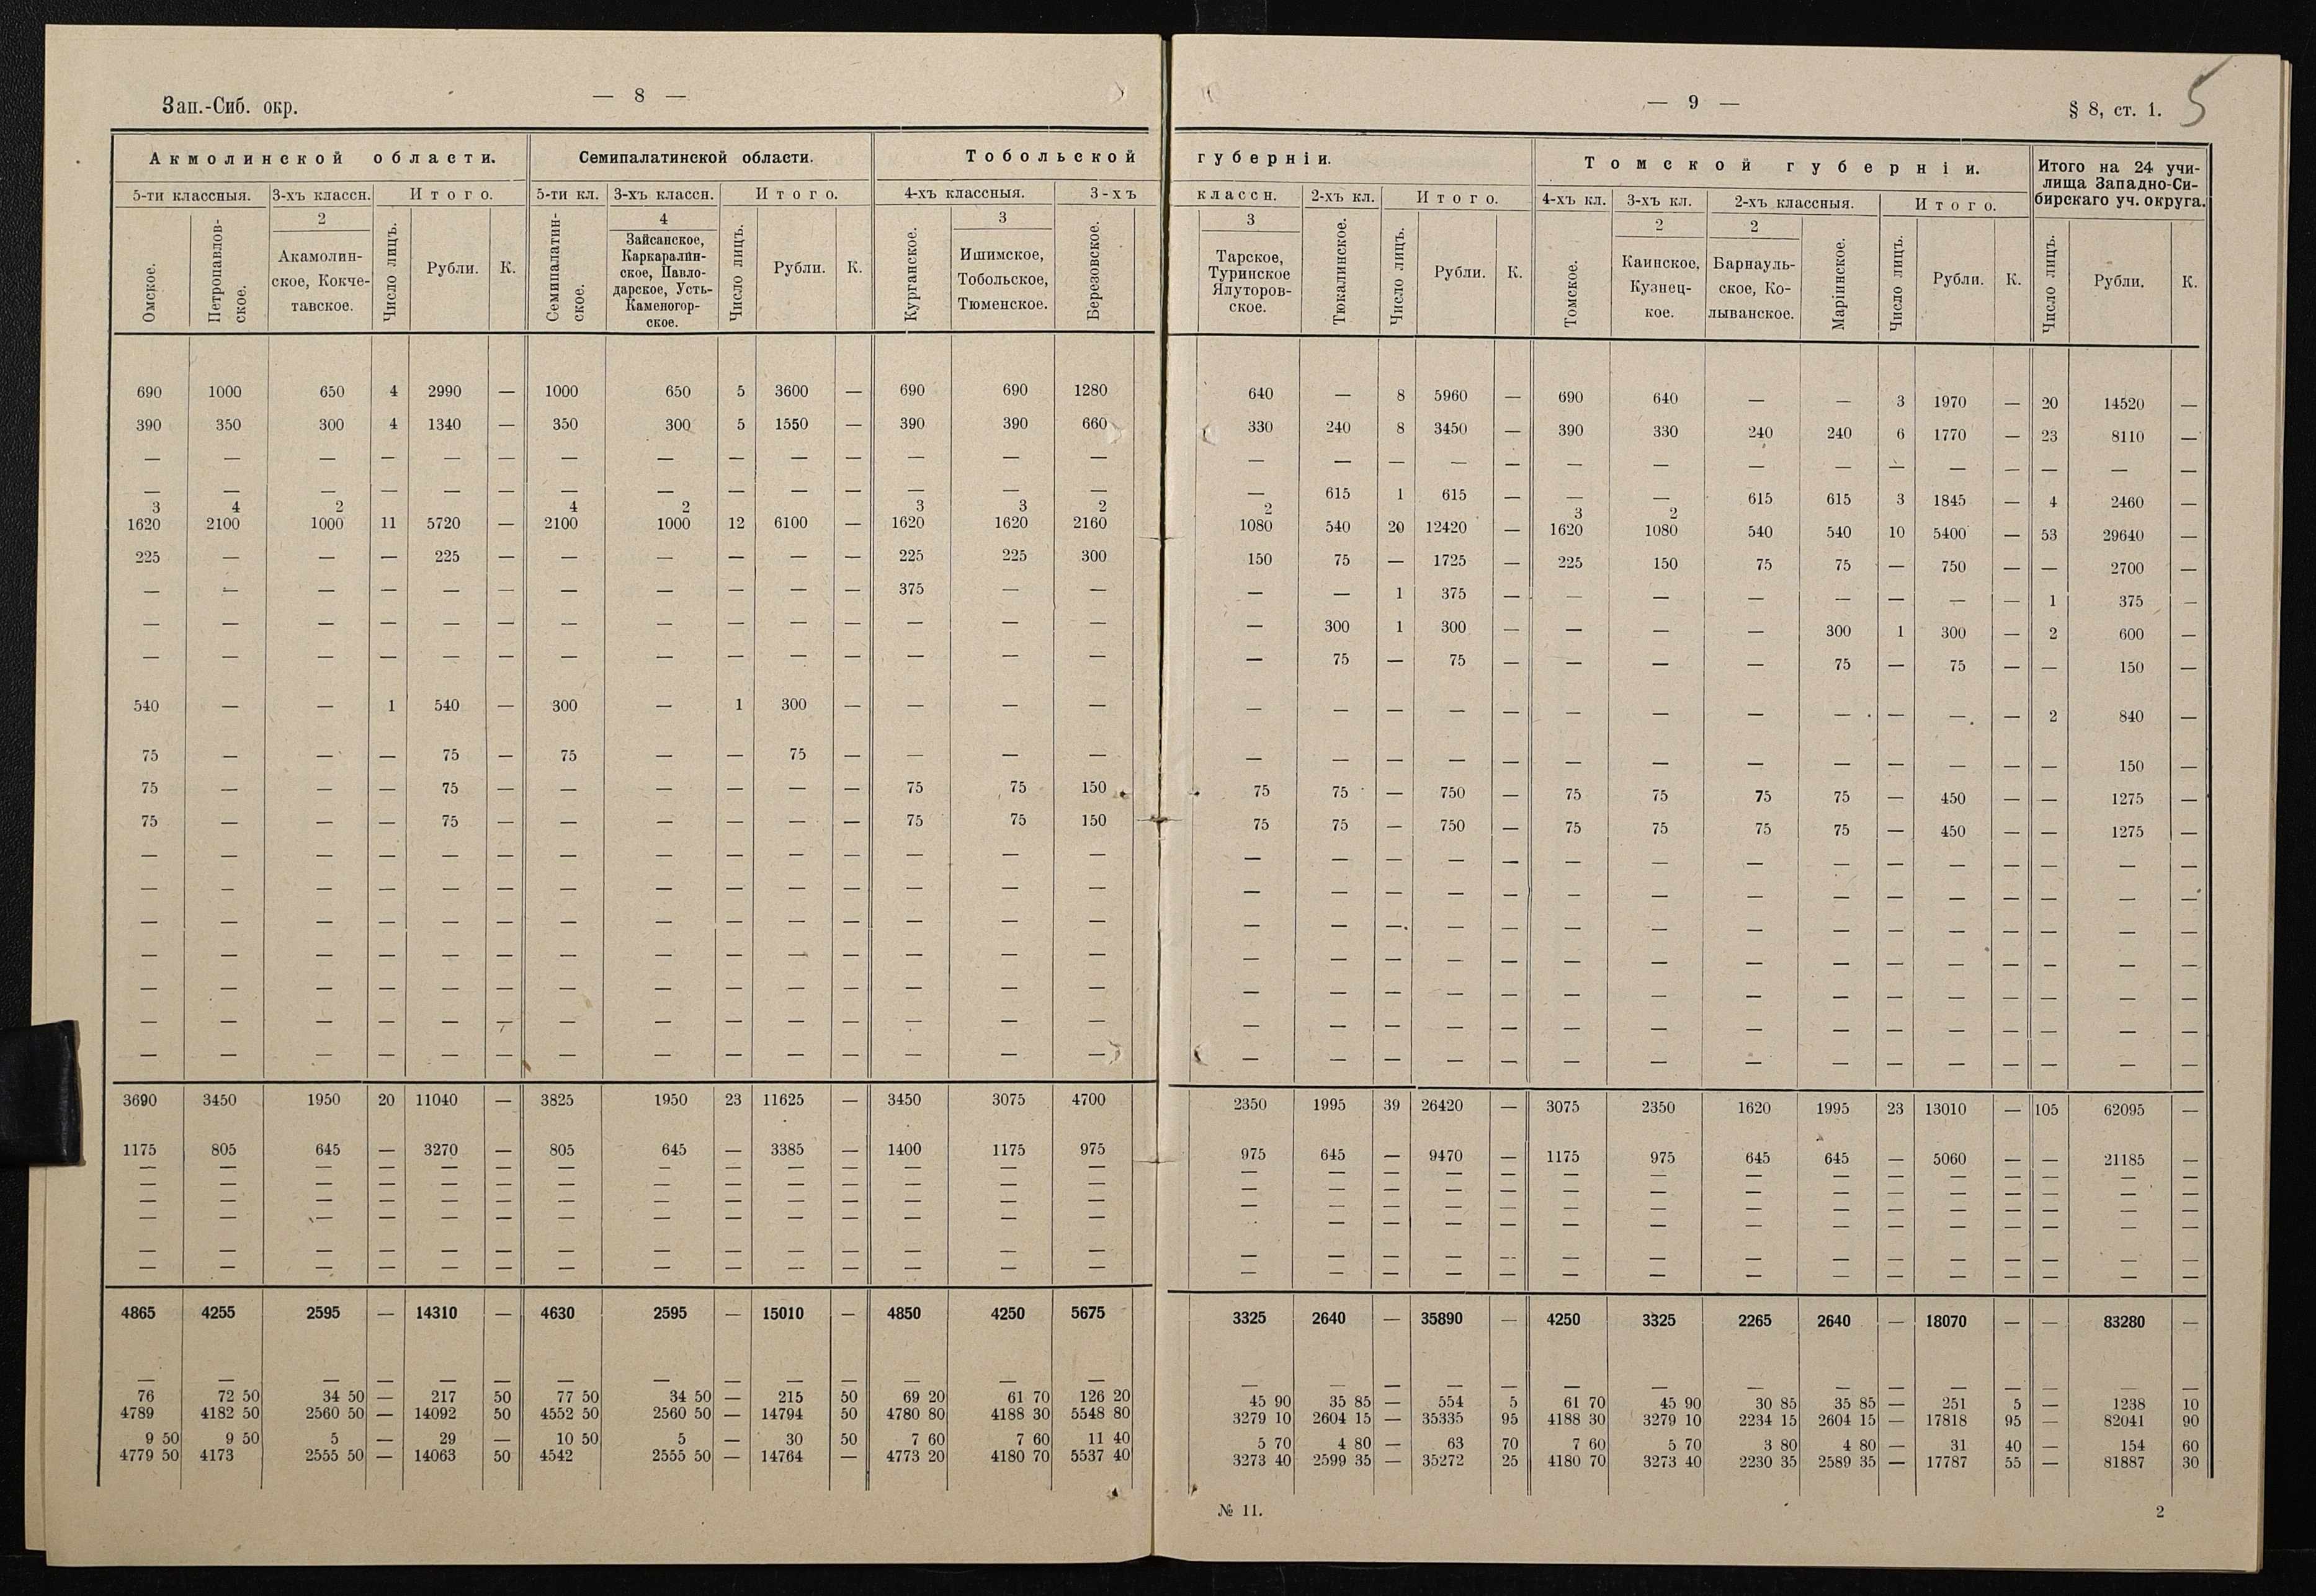 Зап.-Сиб. окр.
— 8 —
Акмолинской области.
Семипалатинской области.
Тобольской
5-ти классныя.
3-хъ классн.
Итого.
5-ти кл.
3-хъ классн.
Итого.
4-хъ классныя.
3-хъ
Омское.
Петропавлов-
ское.
2
Акамолин-
ское, Кокче-
тавское.
Число лицъ.
Рубли.
К.
Семипалатин-
ское.
4
Зайсанское,
Каркаралин-
ское, Павло-
дарское, Усть-
Каменогор-
ское.
Число лицъ.
Рубли.
К.
Курганское.
3
Ишимское,
Тобольское,
Тюменское.
Березовское.
690 1000 650 4 2990 — 1000 650 5 3600 — 690 690 1280
390 350 300 4 1340 — 350 300 5 1550 — 390 390 660
— — — — — — — — — — — — — —
— — — — — — — — — — — — — —
3 4 2 4 2 3 3 2
1620 2100 1000 11 5720 — 2100 1000 12 6100 — 1620 1620 2160
225 — — — 225 — — — — — — 225 225 300
— — — — — — — — — — — 375 — —
— — — — — — — — — — — — — —
— — — — — — — — — — — — — —
540 — — 1 540 — 300 — 1 300 — — — —
75 — — — 75 — 75 — — 75 — — — —
75 — — — 75 — — — — — — 75 75 150
75 — — — 75 — — — — — — 75 75 150
— — — — — — — — — — — — — —
— — — — — — — — — — — — — —
— — — — — — — — — — — — — —
— — — — — — — — — — — — — —
— — — — — — — — — — — — — —
— — — — — — — — — — — — — —
— — — — — — — — — — — — — —
3690 3450 1950 20 11040 — 3825 1950 23 11625 — 3450 3075 4700
1175 805 645 — 3270 — 805 645 — 3385 — 1400 1175 975
— — — — — — — — — — — — — —
— — — — — — — — — — — — — —
— — — — — — — — — — — — — —
— — — — — — — — — — — — — —
— — — — — — — — — — — — — —
— — — — — — — — — — — — — —
4865 4255 2595 — 14310 — 4630 2595 — 15010 — 4850 4250 5675
— — — — — — — — — — — — — —
76 72 50 34 50 — 217 50 77 50 34 50 — 215 50 69 20 61 70 126 20
4789 4182 50 2560 50 — 14092 50 4552 50 2560 50 — 14794 50 4780 80 4188 30 5548 80
9 50 9 50 5 — 29 — 10 50 5 — 30 50 7 60 7 60 11 40
4779 50 4173 2555 50 — 14063 50 4542 2555 50 — 14764 — 4773 20 4180 70 5537 40
— 9 —
§ 8, ст. 1.
5
губерніи.
Томской губерніи.
Итого на 24 учи-
лища Западно-Си-
бирскаго уч. округа.
классн.
2-хъ кл.
Итого.
4-хъ кл.
3-хъ кл.
2-хъ классныя.
Итого.
3
Тарское,
Туринское
Ялуторов-
ское.
Тюкалинское.
Число лицъ.
Рубли.
К.
Томское.
2
Каинское,
Кузнец-
кое.
2
Барнауль-
ское, Ко-
лыванское.
Маріинское.
Число лицъ.
Рубли.
К.
Число лицъ.
Рубли.
К.
640 — 8 5960 — 690 640 — — 3 1970 — 20 14520 —
330 240 8 3450 — 390 330 240 240 6 1770 — 23 8110 —
— — — — — — — — — — — — — — —
— 615 1 615 — — — 615 615 3 1845 — 4 2460 —
2 3 2
1080 540 20 12420 — 1620 1080 540 540 10 5400 — 53 29640 —
150 75 — 1725 — 225 150 75 75 — 750 — — 2700 —
— — 1 375 — — — — — — — — 1 375 —
— 300 1 300 — — — — 300 1 300 — 2 600 —
— 75 — 75 — — — — 75 — 75 — — 150 —
— — — — — — — — — — — — 2 840 —
— — — — — — — — — — — — — 150 —
75 75 — 750 — 75 75 75 75 — 450 — — 1275 —
75 75 — 750 — 75 75 75 75 — 450 — — 1275 —
— — — — — — — — — — — — — — —
— — — — — — — — — — — — — — —
— — — — — — — — — — — — — — —
— — — — — — — — — — — — — — —
— — — — — — — — — — — — — — —
— — — — — — — — — — — — — — —
— — — — — — — — — — — — — — —
2350 1995 39 26420 — 3075 2350 1620 1995 23 13010 — 105 62095 —
975 645 — 9470 — 1175 975 645 645 — 5060 — — 21185 —
— — — — — — — — — — — — — — —
— — — — — — — — — — — — — — —
— — — — — — — — — — — — — — —
— — — — — — — — — — — — — —
— — — — — — — — — — — — — — —
— — — — — — — — — — — — — — —
3325 2640 — 35890 — 4250 3325 2265 2640 — 18070 — — 83280 —
— — — — — — — — — — — — — — —
45 90 35 85 — 554 5 61 70 45 90 30 85 35 85 — 251 5 — 1238 10
3279 10 2604 15 — 35335 95 4188 30 3279 10 2234 15 2604 15 — 17818 95 — 82041 90
5 70 4 80 — 63 70 7 60 5 70 3 80 4 80 — 31 40 — 154 60
3273 40 2599 35 — 35272 25 4180 70 3273 40 2230 35 2589 35 — 17787 55 — 81887 30
№ 11.
2